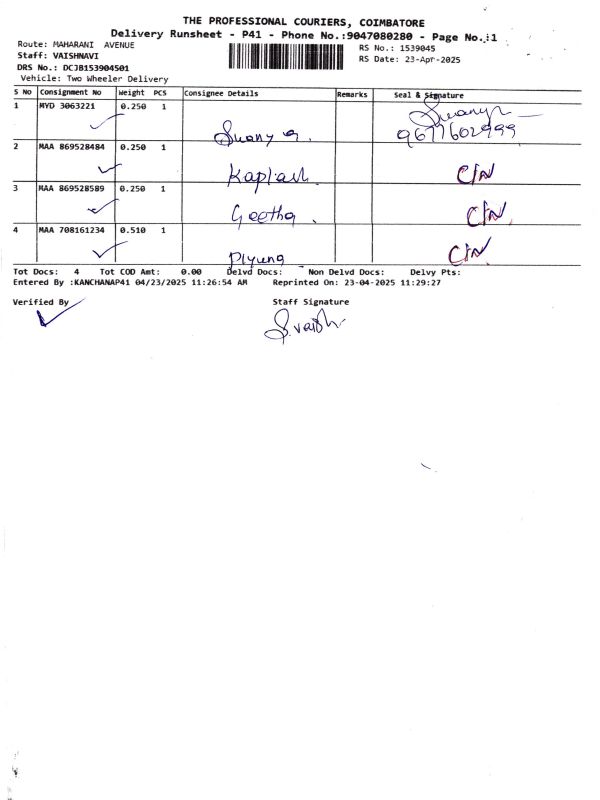 THE PROFESSIONAL COURIERS, COIMBATORE
Delivery Runsheet - P41 - Phone No.:9047080280 - Page No.:1
Route: MAHARANI AVENUE
RS No.: 1539045
Staff: VAISHNAVI
RS Date: 23-Apr-2025
DRS No.: DCJB153904501
Vehicle: Two Wheeler Delivery
S No Consignment No Weight PCS Consignee Details Remarks Seal & Signature
1 MYD 3063221 0.250 1
9677602999
2 MAA 869528484 0.250 1
Kaplash C/N
3 MAA 869528589 0.250 1
Geetha . C/N
4 MAA 708161234 0.510 1
Piyung C/N
Tot Docs: 4 Tot COD Amt: 0.00 Delvd Docs: Non Delvd Docs: Delvy Pts:
Entered By :KANCHANAP41 04/23/2025 11:26:54 AM Reprinted On: 23-04-2025 11:29:27
Verified By Staff Signature
S.vaish